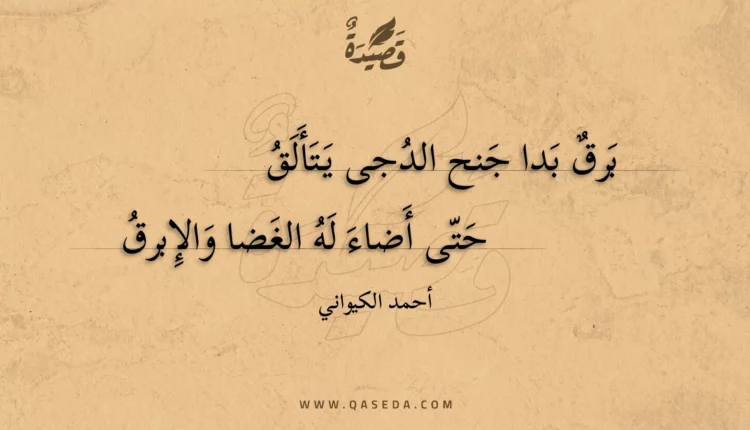 قَصِيْدَةٌ
بَرقٌ بَدا جَنح الدُجى يَتَأَلَقُ
حَتّى أَضاءَ لَهُ الغَضا وَالإِبرقُ
أحمد الكيواني
WWW.QASEDA.COM